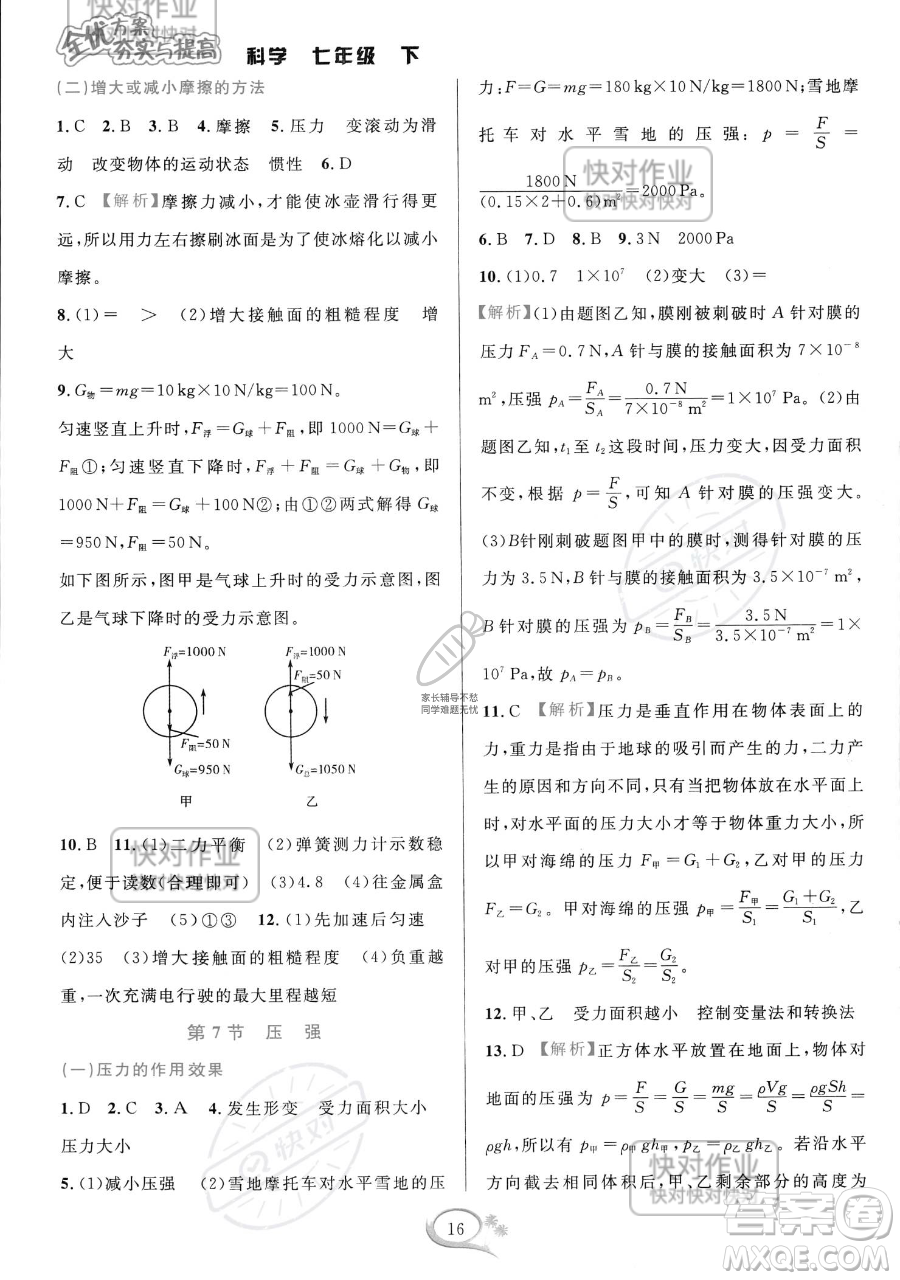 全优方案
夯实与提高
科学 七年级 下
(二)增大或减小摩擦的方法
1.C 2.B 3.B 4.摩擦 5.压力 变滚动为滑
动 改变物体的运动状态 惯性 6.D
7.C 【解析】摩擦力减小,才能使冰壶滑行得更
远,所以用力左右擦刷冰面是为了使冰熔化以减小
摩擦。
8.(1)= > (2)增大接触面的粗糙程度 增
大
9.G物=mg=10 kg×10 N/kg=100 N。
匀速竖直上升时,F浮=G球+F阻,即 1000 N=G球+
F阻①;匀速竖直下降时,F浮+F阻=G球+G物,即
1000 N+F阻=G球+100 N②;由①②两式解得 G球
=950 N,F阻=50 N。
如下图所示,图甲是气球上升时的受力示意图,图
乙是气球下降时的受力示意图。
F浮=1000 N
F阻=50 N
G球=950 N
甲
F浮=1000 N
F阻=50 N
G总=1050 N
乙
10.B 11.(1)二力平衡 (2)弹簧测力计示数稳
定,便于读数(合理即可) (3)4.8 (4)往金属盒
内注入沙子 (5)①③ 12.(1)先加速后匀速
(2)35 (3)增大接触面的粗糙程度 (4)负重越
重,一次充满电行驶的最大里程越短
第 7 节 压 强
(一)压力的作用效果
1.D 2.C 3.A 4.发生形变 受力面积大小
压力大小
5.(1)减小压强 (2)雪地摩托车对水平雪地的压
力:F=G=mg=180 kg×10 N/kg=1800 N;雪地摩
托车对水平雪地的压强:p=F/S=
1800 N/(0.15×2+0.6)m²=2000 Pa。
6.B 7.D 8.B 9.3 N 2000 Pa
10.(1)0.7 1×10⁷ (2)变大 (3)=
【解析】(1)由题图乙知,膜刚被刺破时 A 针对膜的
压力 F_A=0.7 N,A 针与膜的接触面积为 7×10⁻⁸
m²,压强 p_A=F_A/S_A=0.7 N/7×10⁻⁸ m²=1×10⁷ Pa。(2)由
题图乙知,t₁ 至 t₂ 这段时间,压力变大,因受力面积
不变,根据 p=F/S,可知 A 针对膜的压强变大。
(3)B针刚刺破题图甲中的膜时,测得针对膜的压力
为 3.5 N,B 针与膜的接触面积为 3.5×10⁻⁷ m²,
B 针对膜的压强为 p_B=F_B/S_B=3.5 N/3.5×10⁻⁷ m²=1×
10⁷ Pa,故 p_A=p_B。
11.C 【解析】压力是垂直作用在物体表面上的
力,重力是指由于地球的吸引而产生的力,二力产
生的原因和方向不同,只有当把物体放在水平面上
时,对水平面的压力大小才等于物体重力大小,所
以甲对海绵的压力 F甲=G₁+G₂,乙对甲的压力
F乙=G₂。甲对海绵的压强 p甲=F甲/S₁=(G₁+G₂)/S₁,乙
对甲的压强 p乙=F乙/S₂=G₂/S₂。
12.甲、乙 受力面积越小 控制变量法和转换法
13.D 【解析】正方体水平放置在地面上,物体对
地面的压强 p=F/S=G/S=mg/S=ρVg/S=ρgSh/S=
ρgh,所以 p甲=ρ甲gh甲,p乙=ρ乙gh乙。若沿水平
方向截去相同的体积后,甲、乙剩余部分的高度为
16
快对作业
快对快对快对
快对
家长辅导不愁
同学难题无忧
答案卷
MXQE.COM